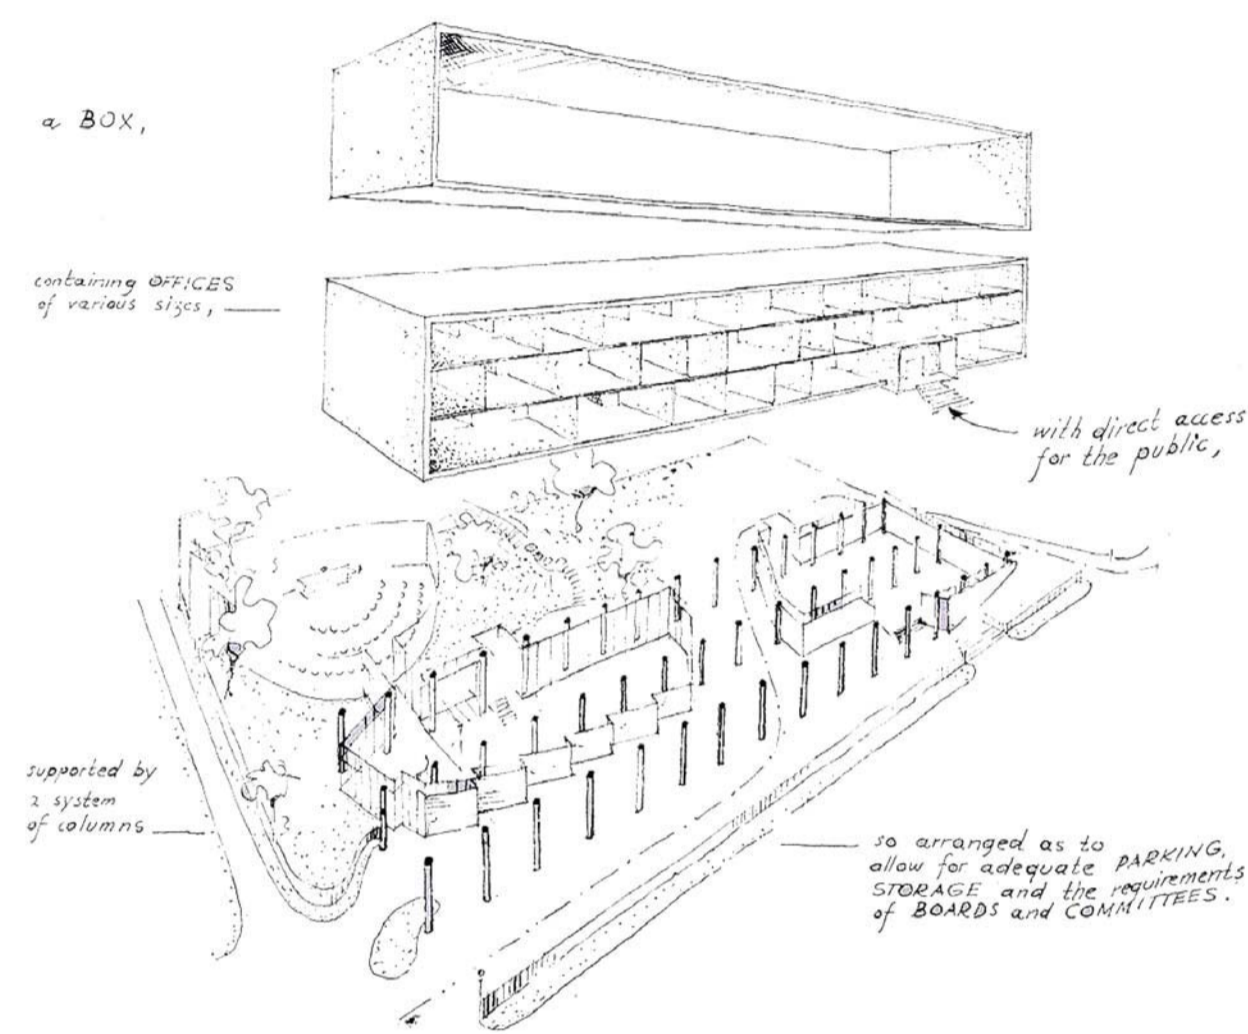 a BOX,
containing OFFICES
of various sizes,
with direct access
for the public,
supported by
a system
of columns
so arranged as to
allow for adequate PARKING,
STORAGE and the requirements
of BOARDS and COMMITTEES.